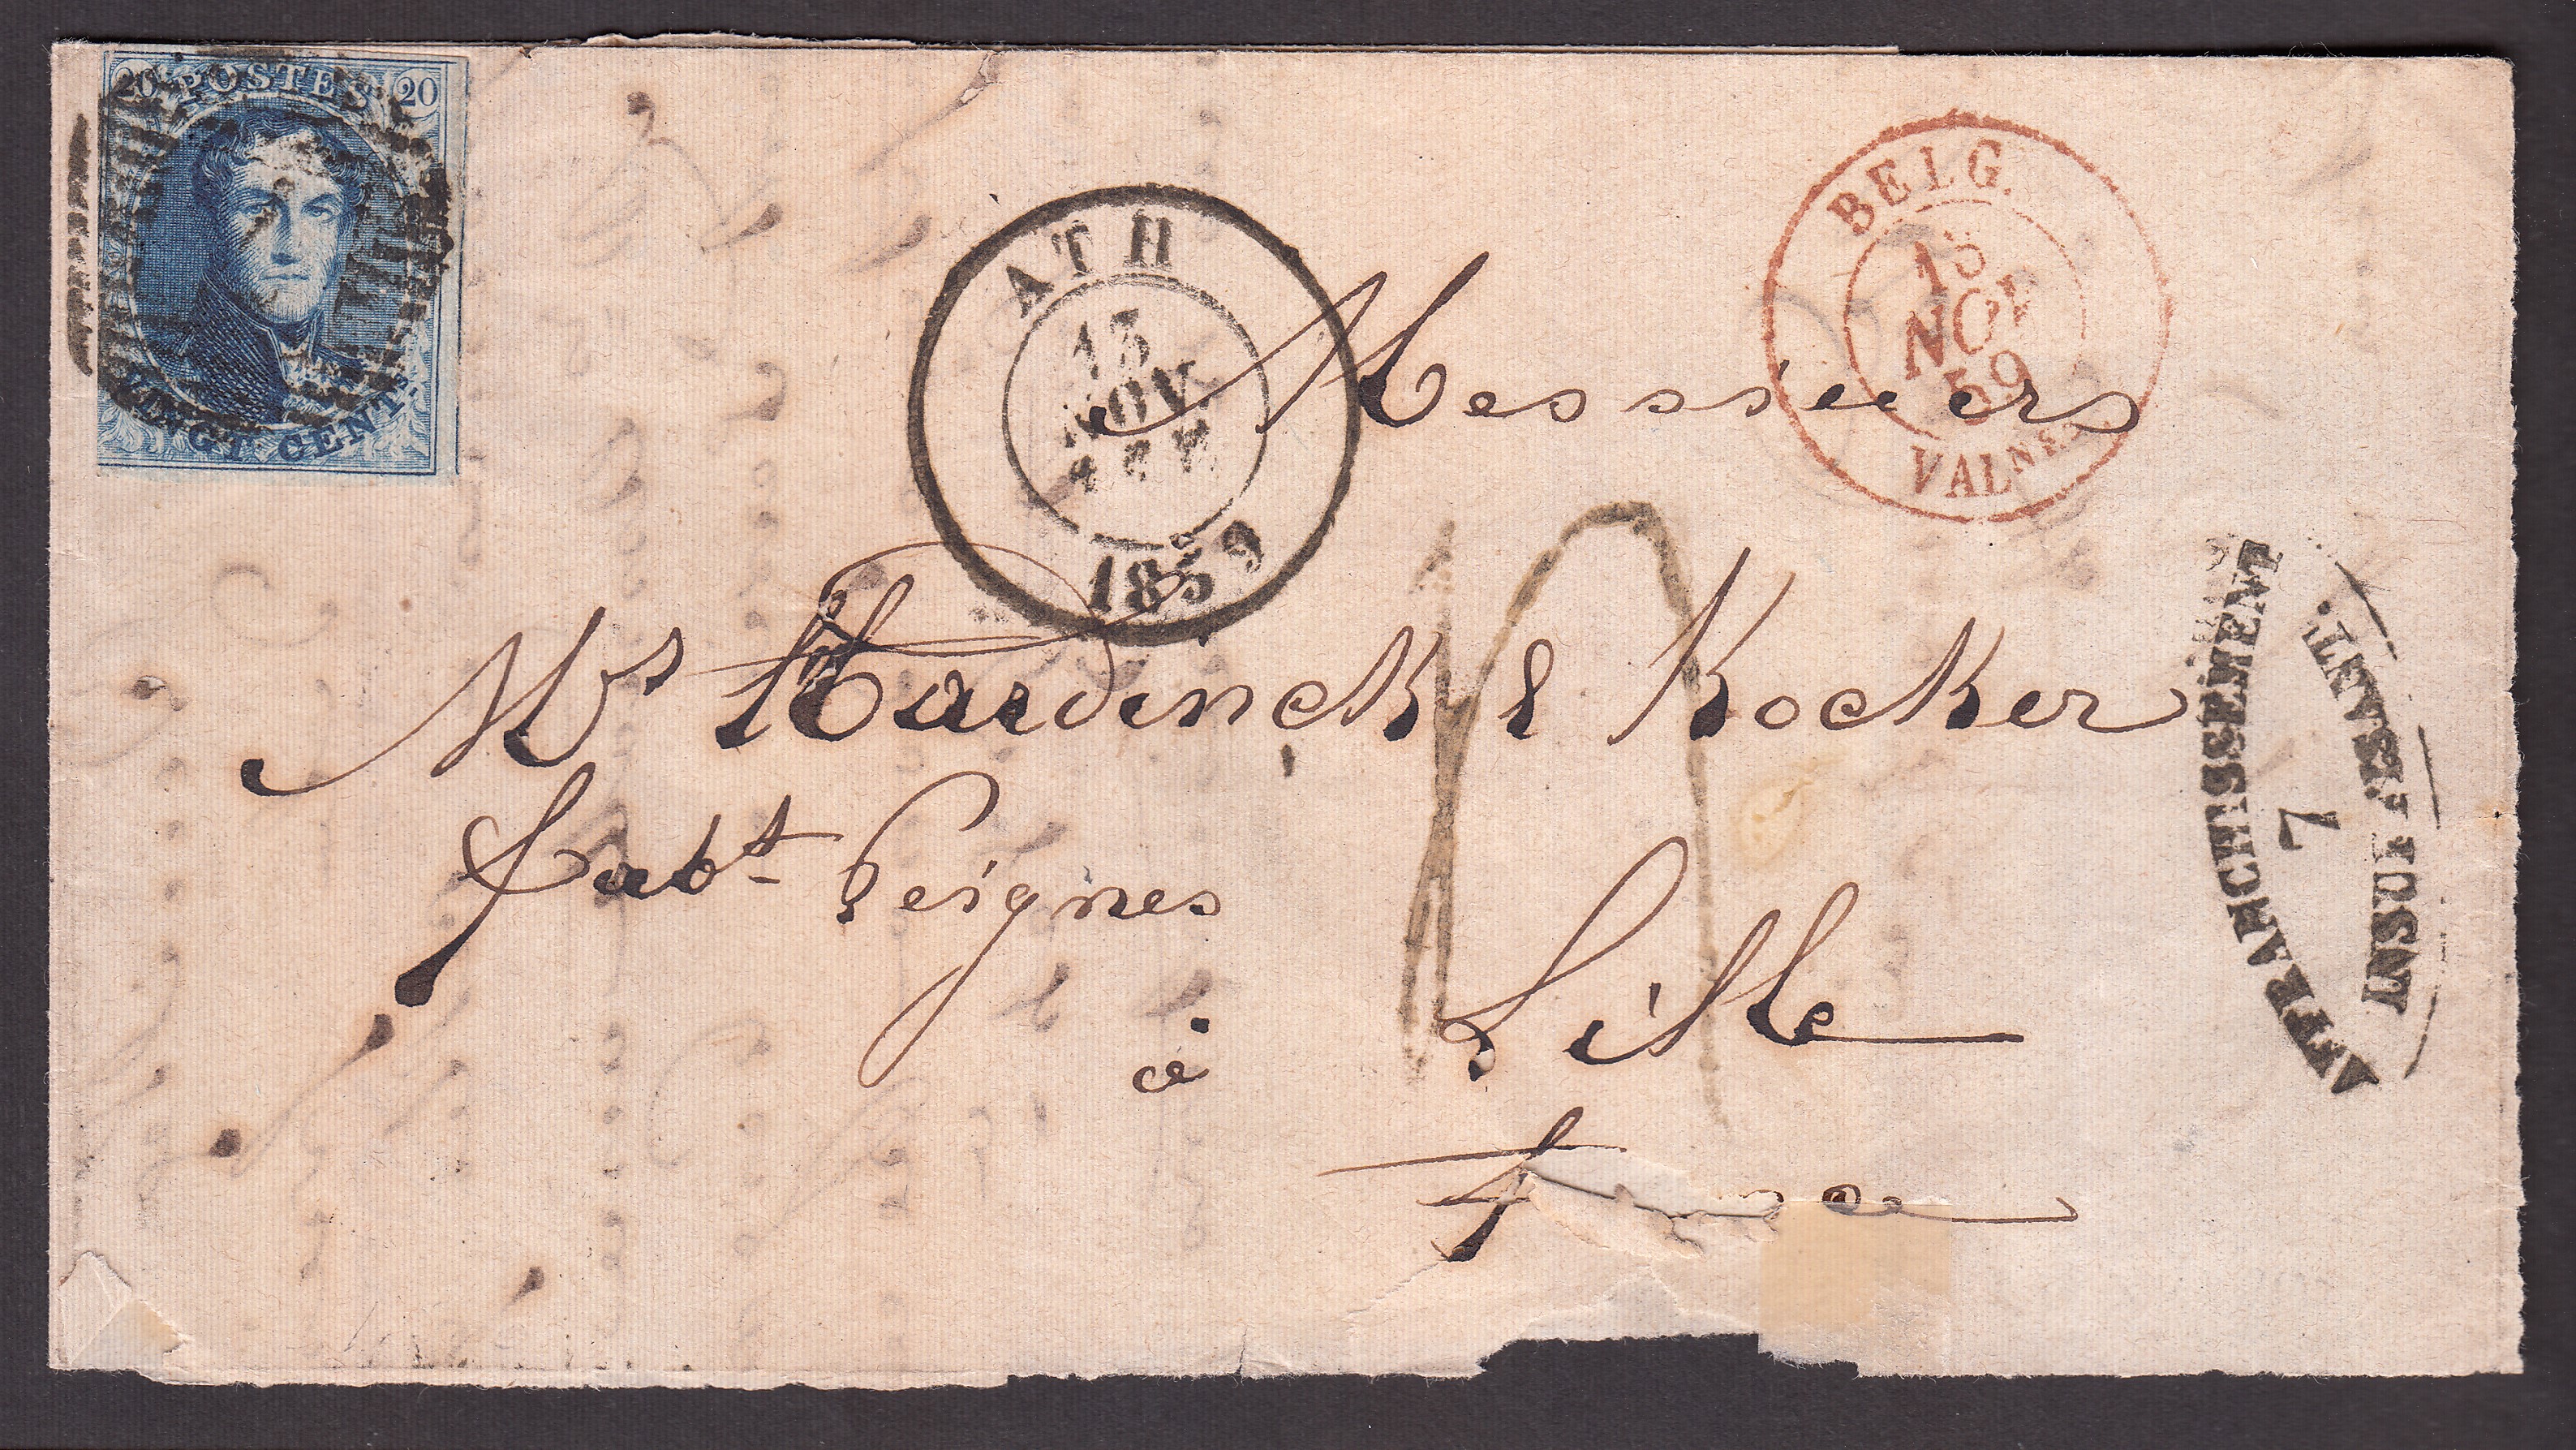 20 POSTES 20
VINGT CENTS.
ATH
13
NOV.
1859
BELG.
13
NOV
59
VALNES
Messieurs
Mrs Hardinck & Kocker
fabt Peignes
à Lille
AFFRANCHISSEMENT
7
INSUFFISANT.